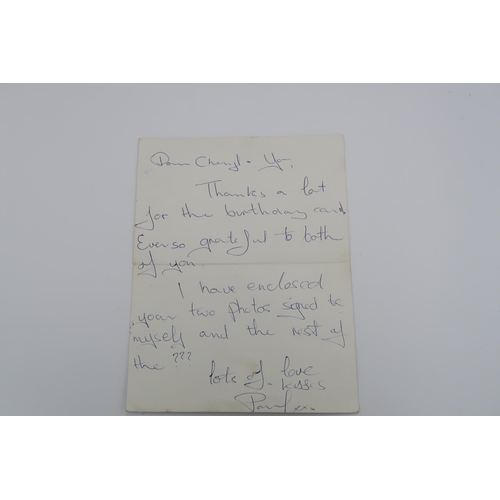 Dear Cheryl + 
Thanks a lot
for the birthday card
Everso grateful to both
of you
I have enclosed
your two photos signed by
myself and the rest of
the ???
lots of love
kisses
Paul xxx